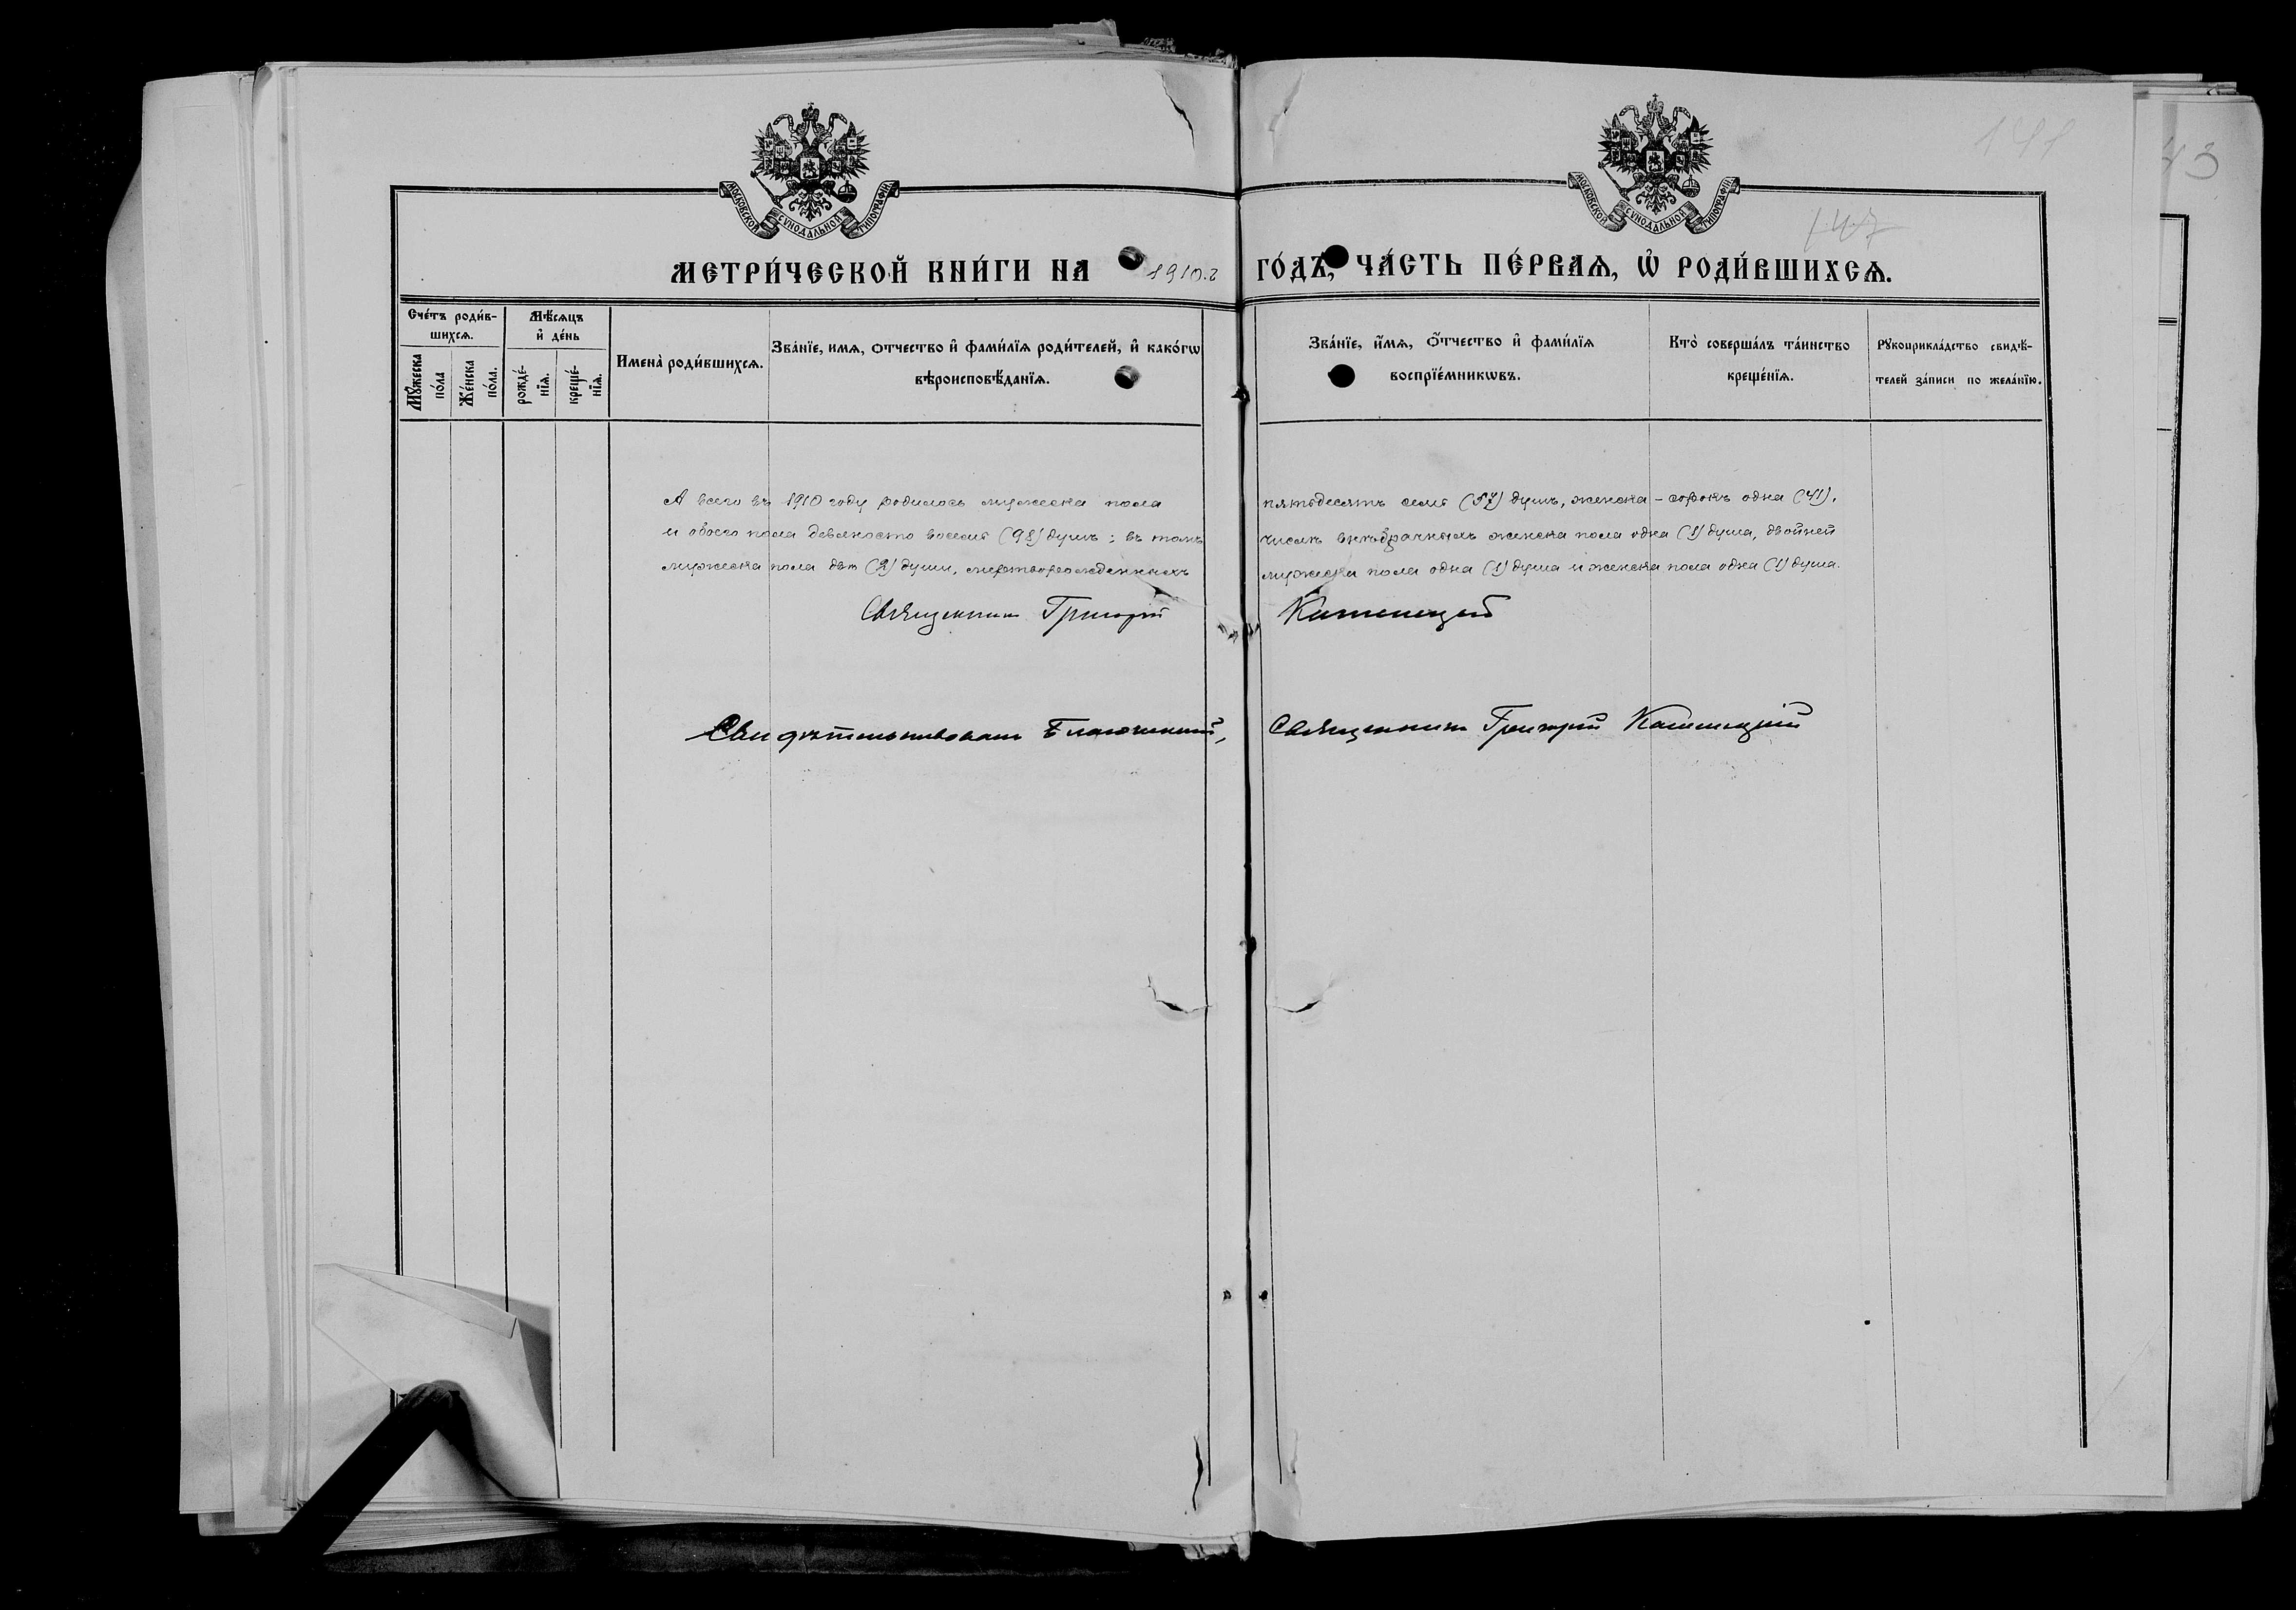 МОСКОВСКОЙ СѴНОДАЛЬНОЙ ТИПОГРАФІИ
МОСКОВСКОЙ СѴНОДАЛЬНОЙ ТИПОГРАФІИ
147
43
МЕТРИ́ЧЕСКОЙ КНИ́ГИ НА 1910.г ГО́ДЪ, ЧА́СТЬ ПЕ́РВАѦ, Ѡ҆ РОДИ́ВШИХСѦ.
Сче́тъ роди́в-
шихсѧ.
Мꙋ́жеска
по́ла
Же́нска
по́ла.
Мѣ́сѧцъ
и҆ де́нь
рожде́-
нїѧ.
креще́-
нїѧ.
Имена̀ роди́вшихсѧ.
Зва́нїе, имѧ, ѻтчество и҆ фами́лїѧ роди́телей, и҆ како́гѡ
вѣроисповѣ́данїѧ.
Зва́нїе, и҆́мѧ, ѻ҆́тчество и҆ фами́лїѧ
воспрїе́мникѡвъ.
Кто̀ соверша́лъ та́инство
креще́нїѧ.
Рꙋкоприкла́дство свидѣ́-
телей за́писи по жела́нїю.
А всего въ 1910 году родилось мужеска пола пятьдесятъ семь (57) душъ, женска – сорокъ одна (41),
и обоего пола девяносто восемь (98) душъ; въ томъ числѣ внѣбрачныхъ женска пола одна (1) душа, двойней
мужеска пола двѣ (2) души, мертворожденныхъ мужеска пола одна (1) душа и женска пола одна (1) душа.
Священникъ Григорій
Свидѣтельствовалъ Благочинный, Священникъ Григорій